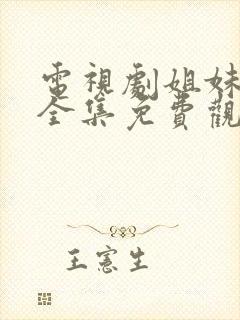 電視劇姐妹
全集免費觀
王憲生